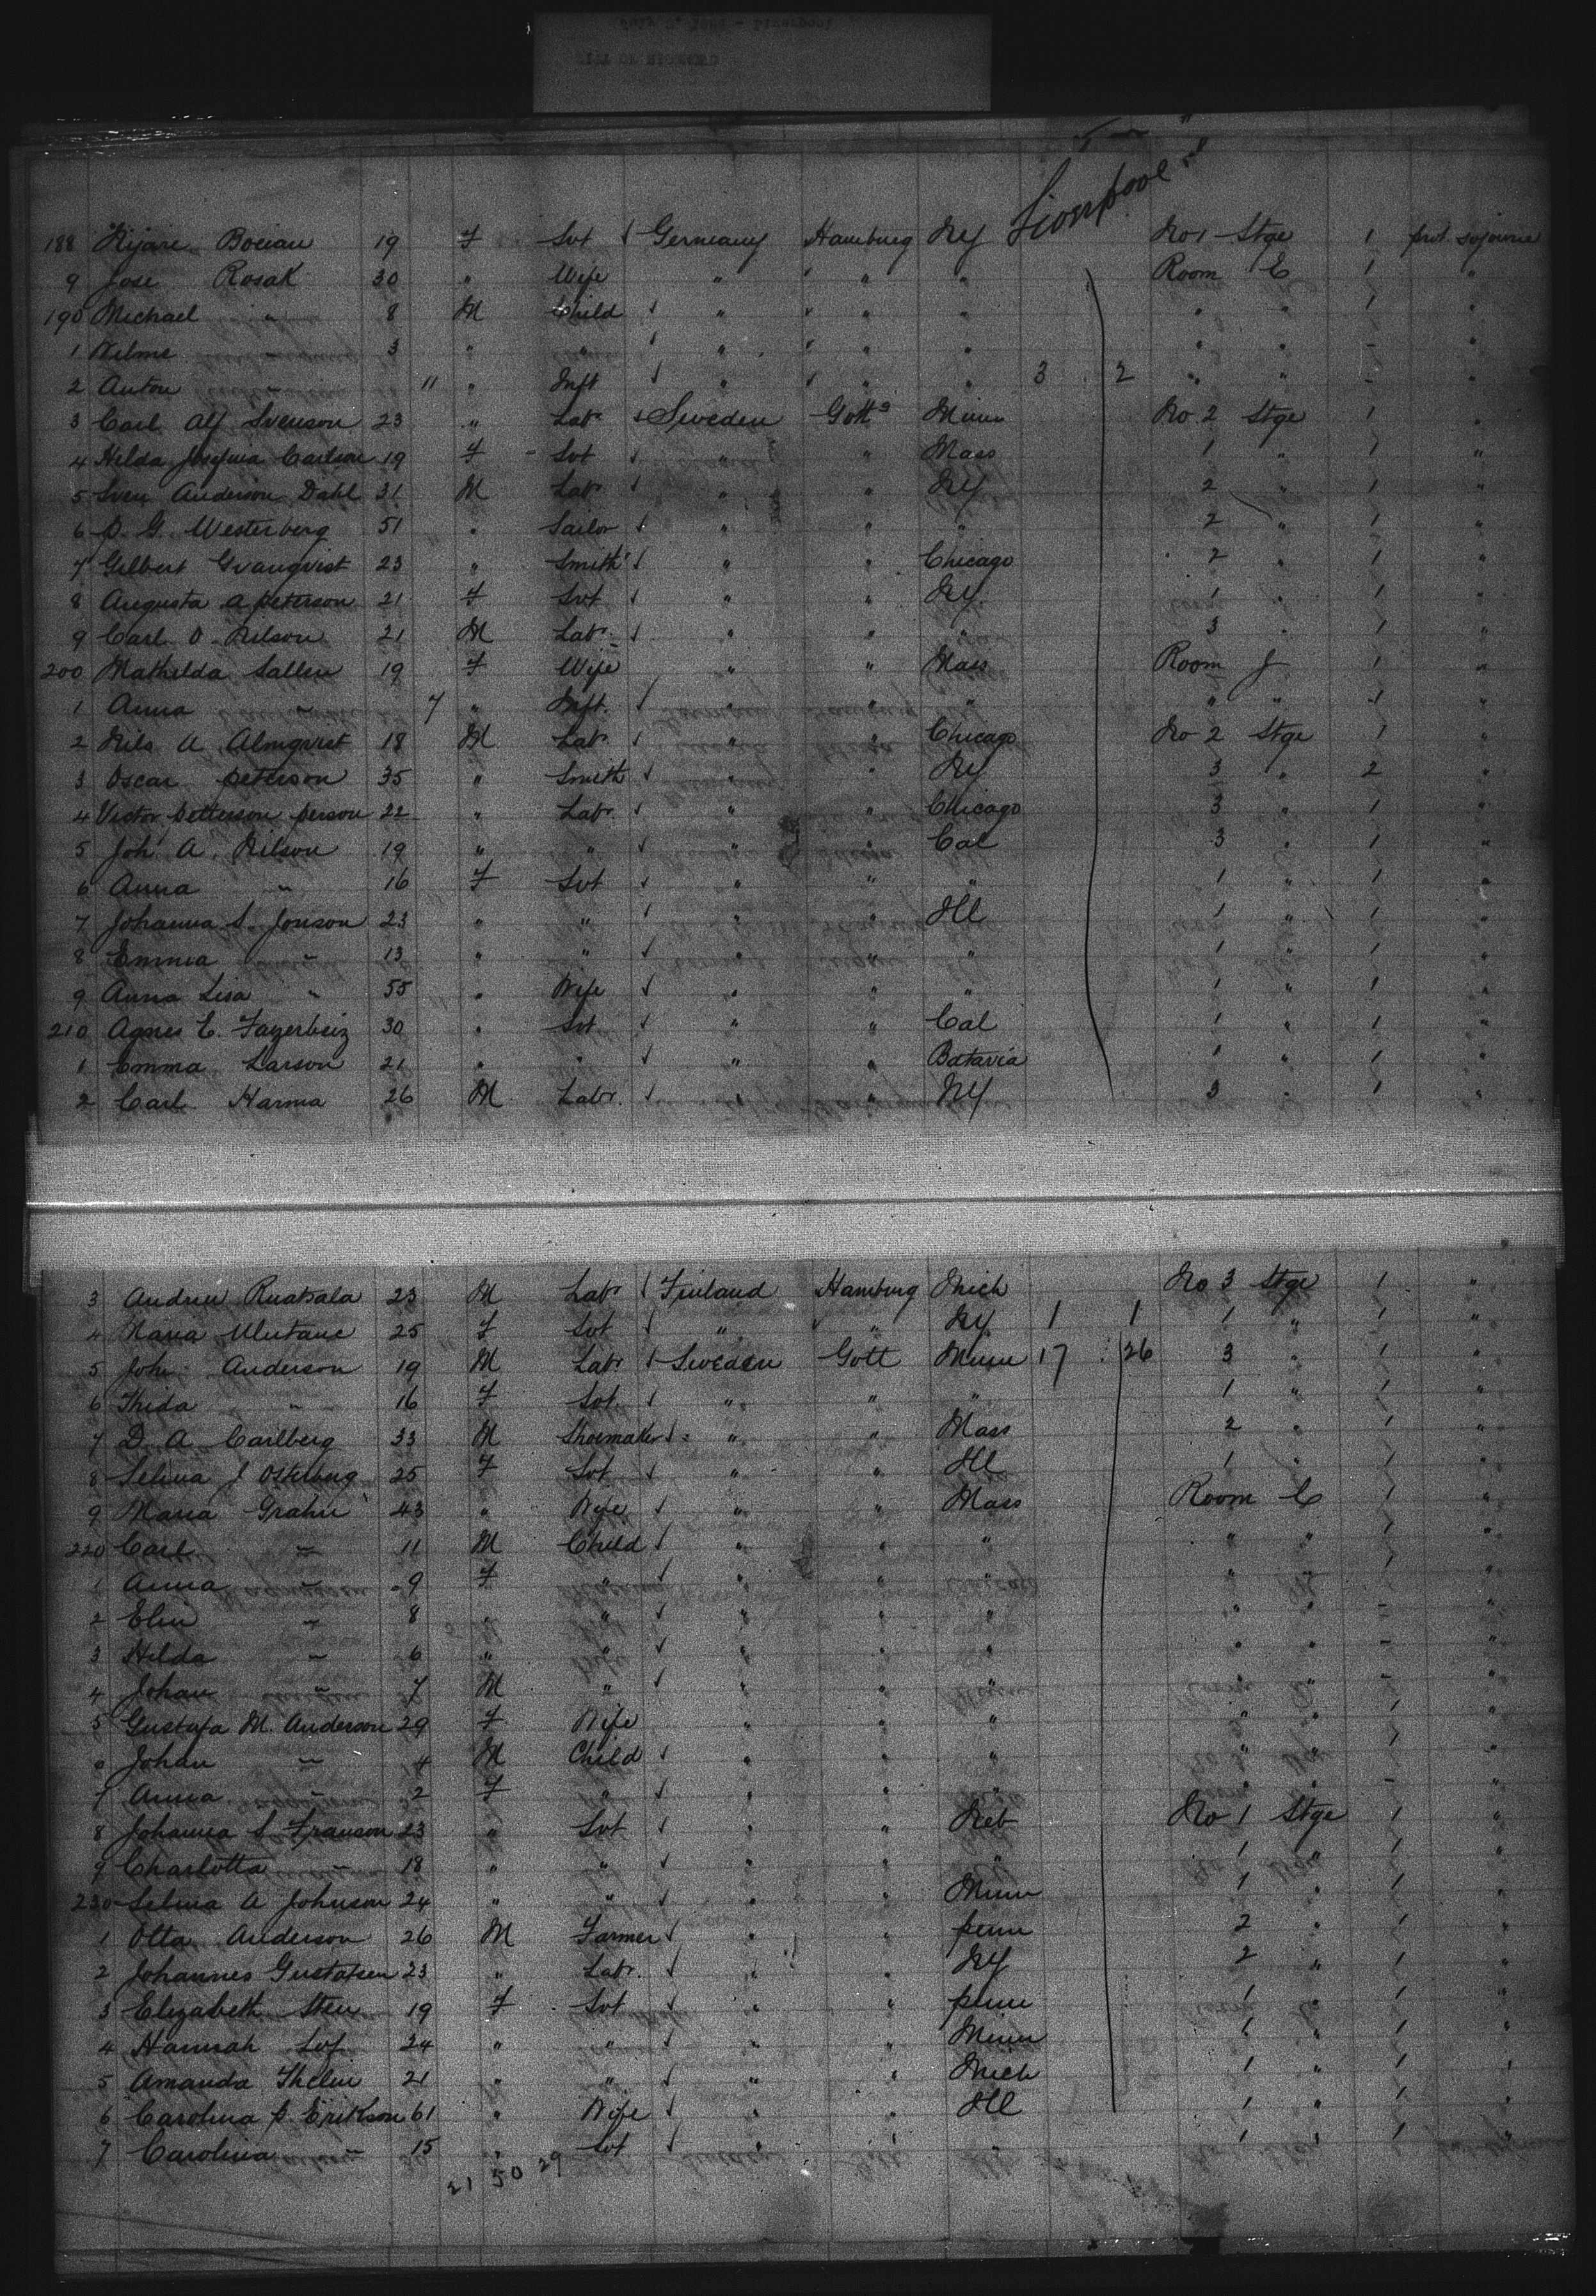 Liverpool
188 Kijare Bocian 19 F Svt √ Germany Hamburg NY No 1 Stge 1 prot. sojourne
9 Jose Rosak 30 " Wife " " " Room C 1 "
190 Michael " 8 M Child √ " " " " " 1 "
1 Wilme " 3 " " √ " " " " " - "
2 Anton " 11 " Inft √ " " " 3 2 " " - "
3 Carl Alf Svenson 23 " Labr √ Sweden Gottg Minn No 2 Stge 1 "
4 Hilda Josefina Carlson 19 F Svt √ " " Mass 1 " 1 "
5 Sven Anderson Dahl 31 M Labr √ " " NY 2 " 1 "
6 P. G. Westerberg 51 " Sailor √ " " " 2 " 1 "
7 Gilbert Granqvist 23 " Smith √ " " Chicago 2 " 1 "
8 Augusta A peterson 21 F Svt √ " " NY 1 " 1 "
9 Carl O. Nilson 21 M Labr √ " " " 3 " 1 "
200 Mathilda Sallin 19 F Wife " " Mass Room J 1 "
1 Anna " 7 " Inft. √ " " " " " 1 "
2 Nils A Almqvist 18 M Labr √ " " Chicago No 2 Stge 1 "
3 Oscar peterson 35 " Smith √ " " NY 3 " 2 "
4 Victor petterson person 22 " Labr. √ " " Chicago 3 " 1 "
5 Joh A. Nilson 19 " " √ " " Cal 3 " 1 "
6 Anna " 16 F Svt √ " " " 1 " 1 "
7 Johanna S. Jonson 23 " " √ " " Ill 1 " 1 "
8 Emma " 13 " " √ " " " 1 " 1 "
9 Anna Lisa " 55 " Wife √ " " " 1 " 1 "
210 Agnes C. 30 " Svt √ " " Cal 1 " 1 "
1 Emma Larson 21 " " √ " " Batavia 1 " 1 "
2 Carl Harma 26 M Labr. √ " " NY 3 " 1 "
3 Andrew Ruatsala 23 M Labr √ Finland Hamburg Mich No 3 Stge 1 "
4 Maria 25 F Svt √ " " NY 1 1 1 " 1 "
5 Joh Anderson 19 M Labr √ Sweden Gott Minn 17 26 3 " 1 "
6 Thida " 16 F Svt √ " " " 1 " 1 "
7 D. A. Carlberg 33 M Shoemaker √ " " Mass 2 " 1 "
8 Selma J Osterberg 25 F Svt √ " " Ill 1 " 1 "
9 Maria Grahn 43 " Wife √ " " Mass Room C 1 "
220 Carl " 11 M Child √ " " " " " 1 "
1 Anna " 9 F " √ " " " " " 1 "
2 Elin " 8 " " √ " " " " " - "
3 Hilda " 6 " " √ " " " " " - "
4 Johan " 7 M " √ " " " " " - "
5 Gustafa M. Anderson 29 F Wife " " " " " 1 "
6 Johan " 4 M Child √ " " " " " 1 "
7 Anna " 2 F " √ " " " " " - "
8 Johanna S Franson 23 " Svt √ " " Neb No 1 Stge 1 "
9 Charlotta " 18 " " √ " " " 1 " 1 "
230 Selma A Johnson 24 " " √ " " Minn 1 " 1 "
1 Otta Anderson 26 M Farmer √ " " penn 2 " 1 "
2 Johannes Gustafsen 23 " Labr. √ " " NY 2 " 1 "
3 Elizabeth Sten 19 F Svt √ " " penn 1 " 1 "
4 Hannah Lof 24 " " √ " " Minn 1 " 1 "
5 Amanda Thelin 21 " " √ " " Mich 1 " 1 "
6 Carolina P. Erikson 61 " Wife √ " " Ill 1 " 1 "
7 Carolina " 15 " Svt √ " " " 1 " 1 "
21 50 29